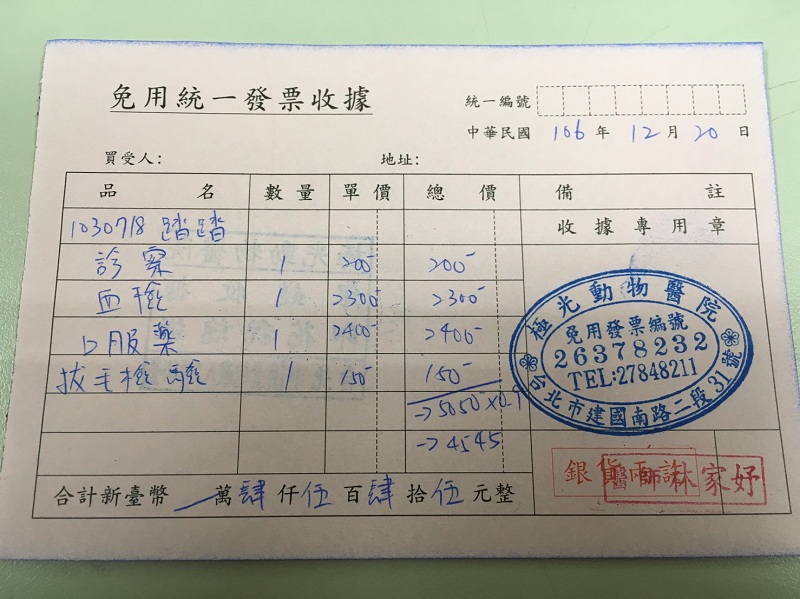 免用統一發票收據
統一編號
中華民國 106 年 12 月 20 日
買受人： 地址：
品名 數量 單價 總價 備註
收據專用章
1030718 踏踏
診察 1 200- 200-
血檢 1 2300- 2300-
口服藥 1 2400- 2400-
拔毛檢驗 1 150- 150-
→5050×0.9
→4545
極光動物醫院
免用發票編號
26378232
TEL:27848211
台北市建國南路二段31號
銀貨兩訖
醫師林家妤
合計新臺幣 萬肆仟伍百肆拾伍元整